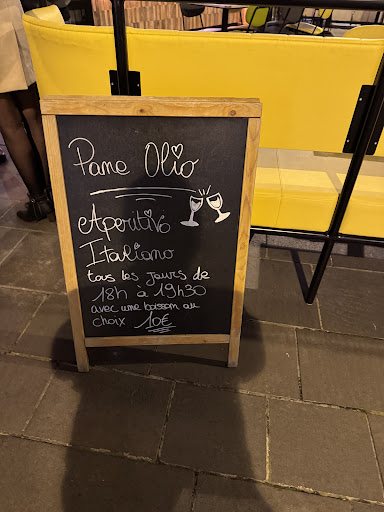 Pane Olio
Aperitivo
Italiano
tous les jours de
18h à 19h30
avec une boisson au
choix 10€